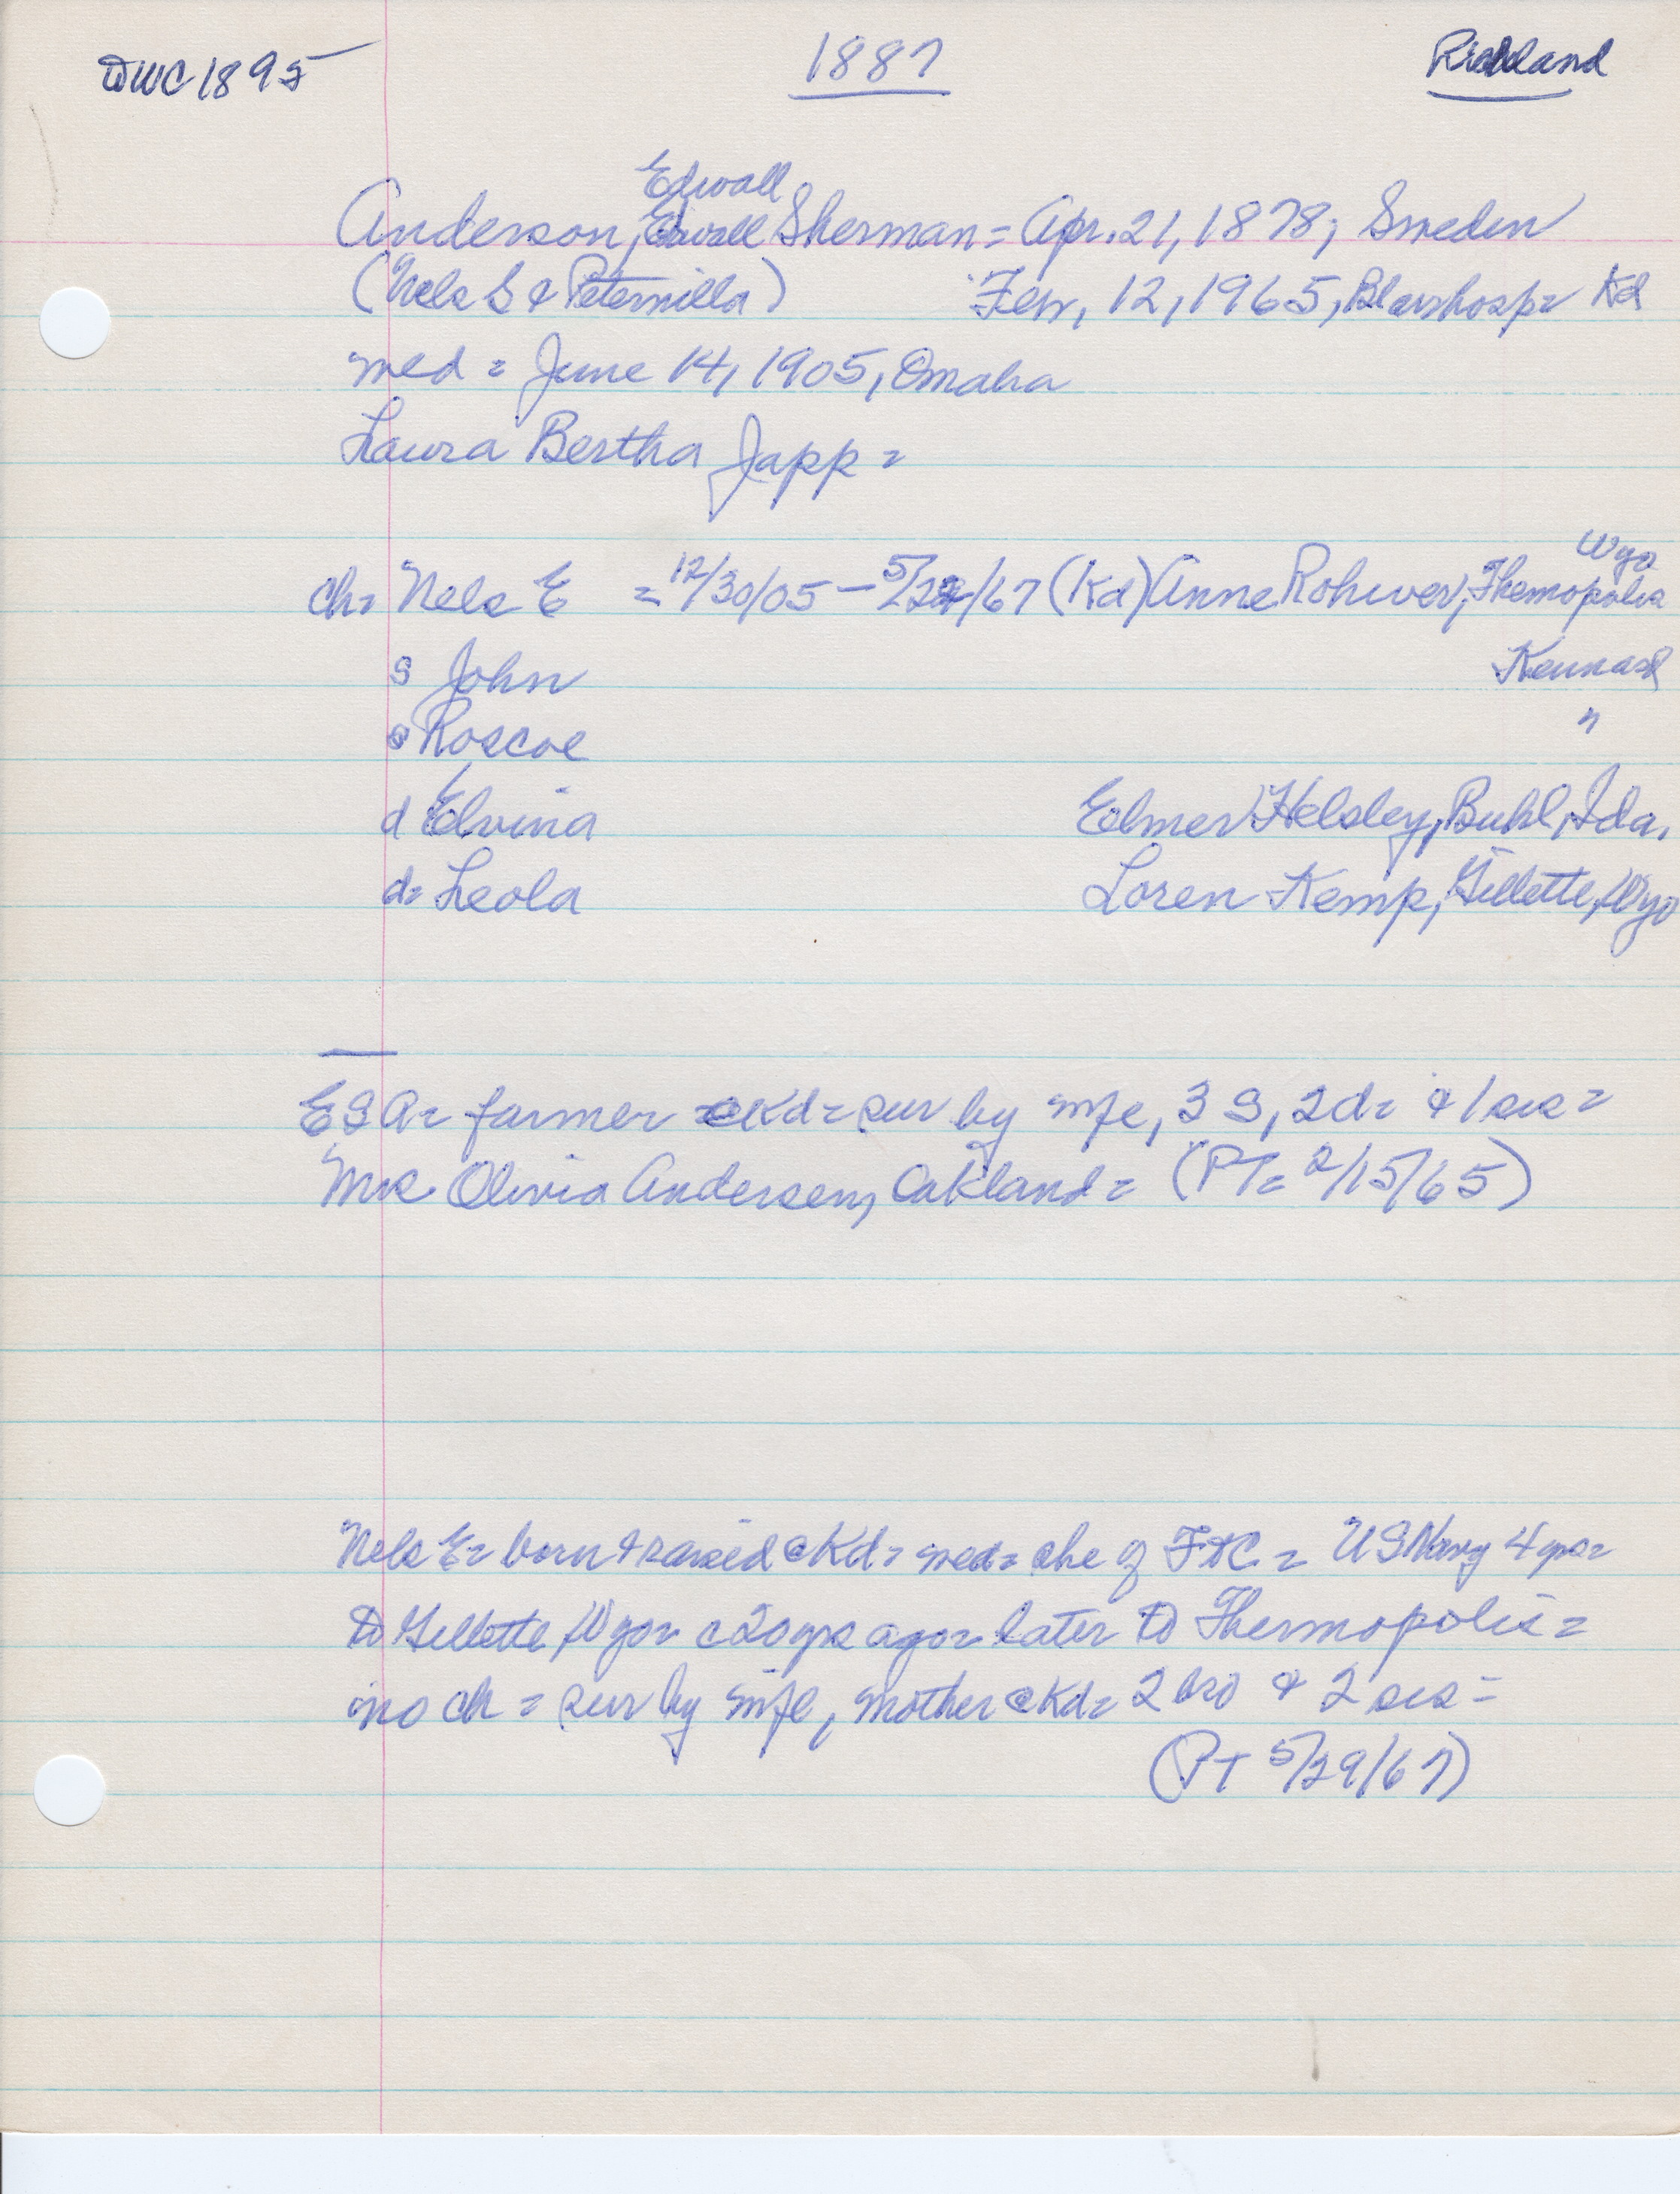 DWC 1895
1887
Richland
Edwall
Anderson, Edwall Sherman = Apr. 21, 1878; Sweden
(Nels S & Peternilla) Feb, 12, 1965, Blairhosp = Kd
med = June 14, 1905, Omaha
Laura Bertha Japp =
Wyo
ch = Nels E = 12/30/05 – 5/22/67 (Kd) Anne Rohwer, Themopolis
s John Kennard
s Roscoe "
d Elvina Elmer Helsley, Buhl, Ida,
d = Leola Loren Kemp, Gillette, Wyo
ESA = farmer @ Kd = sur by wfe, 3 S, 2d = & 1 sis =
Mrs Olivia Andersen, Oakland = (PT = 2/15/65)
Nels E = born & raised @ Kd = med = che of = US Navy 4 yrs =
to Gillette Wyo = c20yrs ago = later to Thermopolis =
no ch = sur by wfe, mother @ Kd = 2 bro & 2 sis =
(PT 5/29/67)